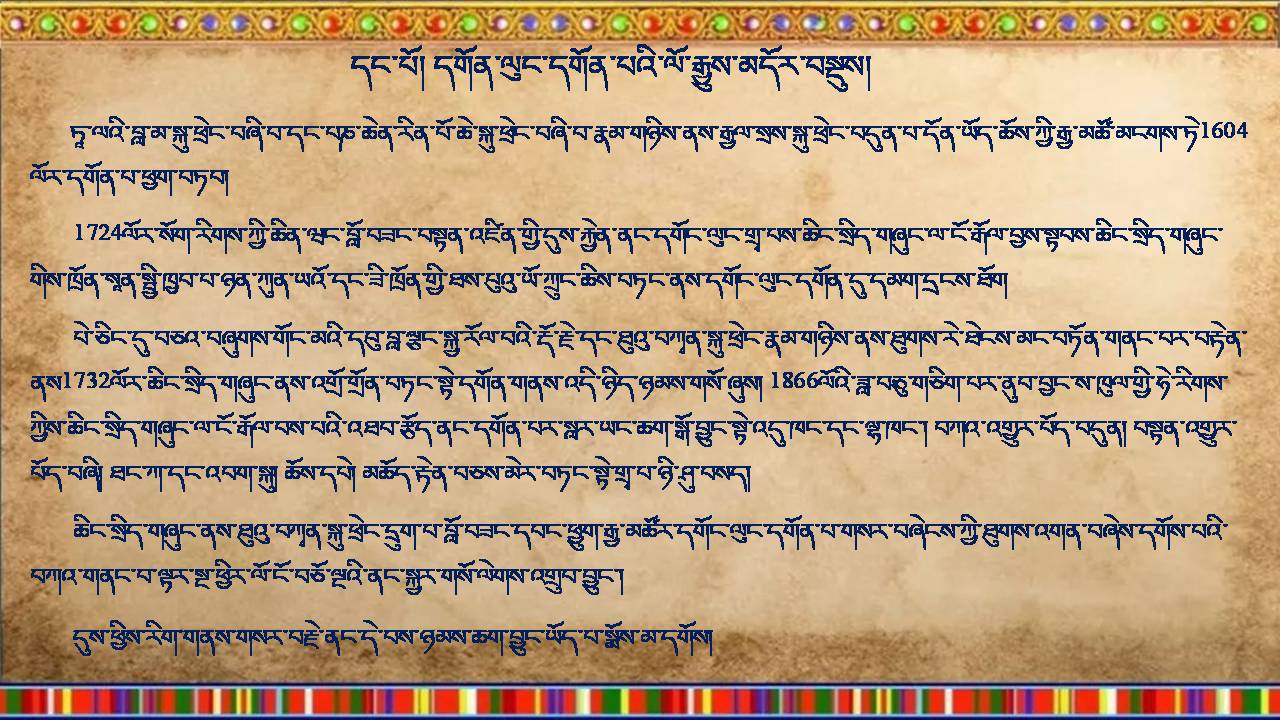 དང་པོ། དགོན་ལུང་དགོན་པའི་ལོ་རྒྱུས་མདོར་བསྡུས།
ཏཱ་ལའི་བླ་མ་སྐུ་ཕྲེང་བཞི་བ་དང་པཎ་ཆེན་རིན་པོ་ཆེ་སྐུ་ཕྲེང་བཞི་བ་རྣམ་གཉིས་ནས་རྒྱལ་སྲས་སྐུ་ཕྲེང་བདུན་པ་དོན་ཡོད་ཆོས་ཀྱི་རྒྱ་མཚོ་མངགས་ཏེ1604
ལོར་དགོན་པ་ཕྱག་བཏབ།
1724ལོར་སོག་རིགས་ཀྱི་ཆིན་ཝང་བློ་བཟང་བསྟན་འཛིན་གྱི་དུས་རྐྱེན་ནང་དགོང་ལུང་གྲྭ་པས་ཆིང་སྲིད་གཞུང་ལ་ངོ་རྒོལ་བྱས་སྟབས་ཆིང་སྲིད་གཞུང་
གིས་ཁྲོན་སཱན་སྤྱི་ཁྱབ་པ་ཉན་ཀུན་ཡའོ་དང་ཟི་ཁྲོན་གྱི་ཐས་པུའུ་ཡོ་ཀྲུང་ཆིས་བཏང་ནས་དགོང་ལུང་དགོན་དུ་དམག་དྲངས་ཐོག
པེ་ཅིང་དུ་བཅའ་བཞུགས་གོང་མའི་དབུ་བླ་ལྕང་སྐྱ་རོལ་པའི་རྡོ་རྗེ་དང་ཐུའུ་བཀྭན་སྐུ་ཕྲེང་རྣམ་གཉིས་ནས་ཐུགས་རེ་ཐེངས་མང་བཏོན་གནང་བར་བརྟེན་
ནས1732ལོར་ཆིང་སྲིད་གཞུང་ནས་འགྲོ་གྲོན་བཏང་སྟེ་དགོན་གནས་འདི་ཉིད་ཉམས་གསོ་ཞུས། 1866ལོའི་ཟླ་བཅུ་གཅིག་པར་ནུབ་བྱང་ས་ཁུལ་གྱི་ཧེ་རིགས་
ཀྱིས་ཆིང་སྲིད་གཞུང་ལ་ངོ་རྒོལ་བས་པའི་འཐབ་རྩོད་ནང་དགོན་པར་སླར་ཡང་ཆག་སྒོ་བྱུང་སྟེ་འདུ་ཁང་དང་ལྷ་ཁང་། བཀའ་འགྱུར་པོད་བདུན། བསྟན་འགྱུར་
པོད་བཞི། ཐང་ཀ་དང་འབག་སྐུ། ཆོས་དཔེ། མཆོད་རྟེན་བཅས་མེར་བཏང་སྟེ་གྲྭ་པ་ཉི་ཤུ་བསད།
ཆིང་སྲིད་གཞུང་ནས་ཐུའུ་བཀྭན་སྐུ་ཕྲེང་དྲུག་པ་བློ་བཟང་དབང་ཕྱུག་རྒྱ་མཚོར་དགོང་ལུང་དགོན་པ་གསར་བཞེངས་ཀྱི་ཐུགས་འགན་བཞེས་དགོས་པའི་
བཀའ་གནང་བ་ལྟར་སྔ་ཕྱིར་ལོ་ངོ་བཅོ་ལྔའི་ནང་སྐྱར་གསོ་ལེགས་འགྲུབ་བྱུང་།
དུས་ཕྱིས་རིག་གནས་གསར་བརྗེ་ནང་དེ་བས་ཉམས་ཆག་བྱུང་ཡོད་པ་སྨོས་མ་དགོས།